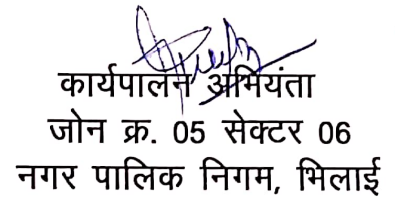 कार्यपालन अभियंता
जोन क्र. 05 सेक्टर 06
नगर पालिक निगम, भिलाई